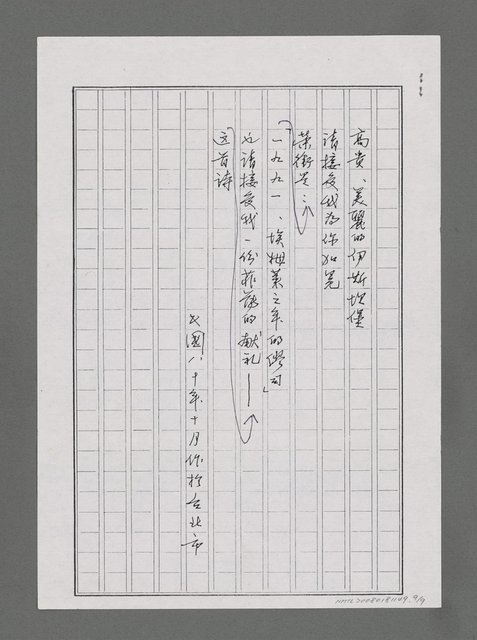 高贵、美麗的伊斯坦堡
請接受我為你加冕
荣銜是…
「一九九一、埃姆莱之年的繆司」
也請接受我一份菲薄的献礼——
这首诗
民國八十年十月作於台北市
NMTL20080181149. 9/9